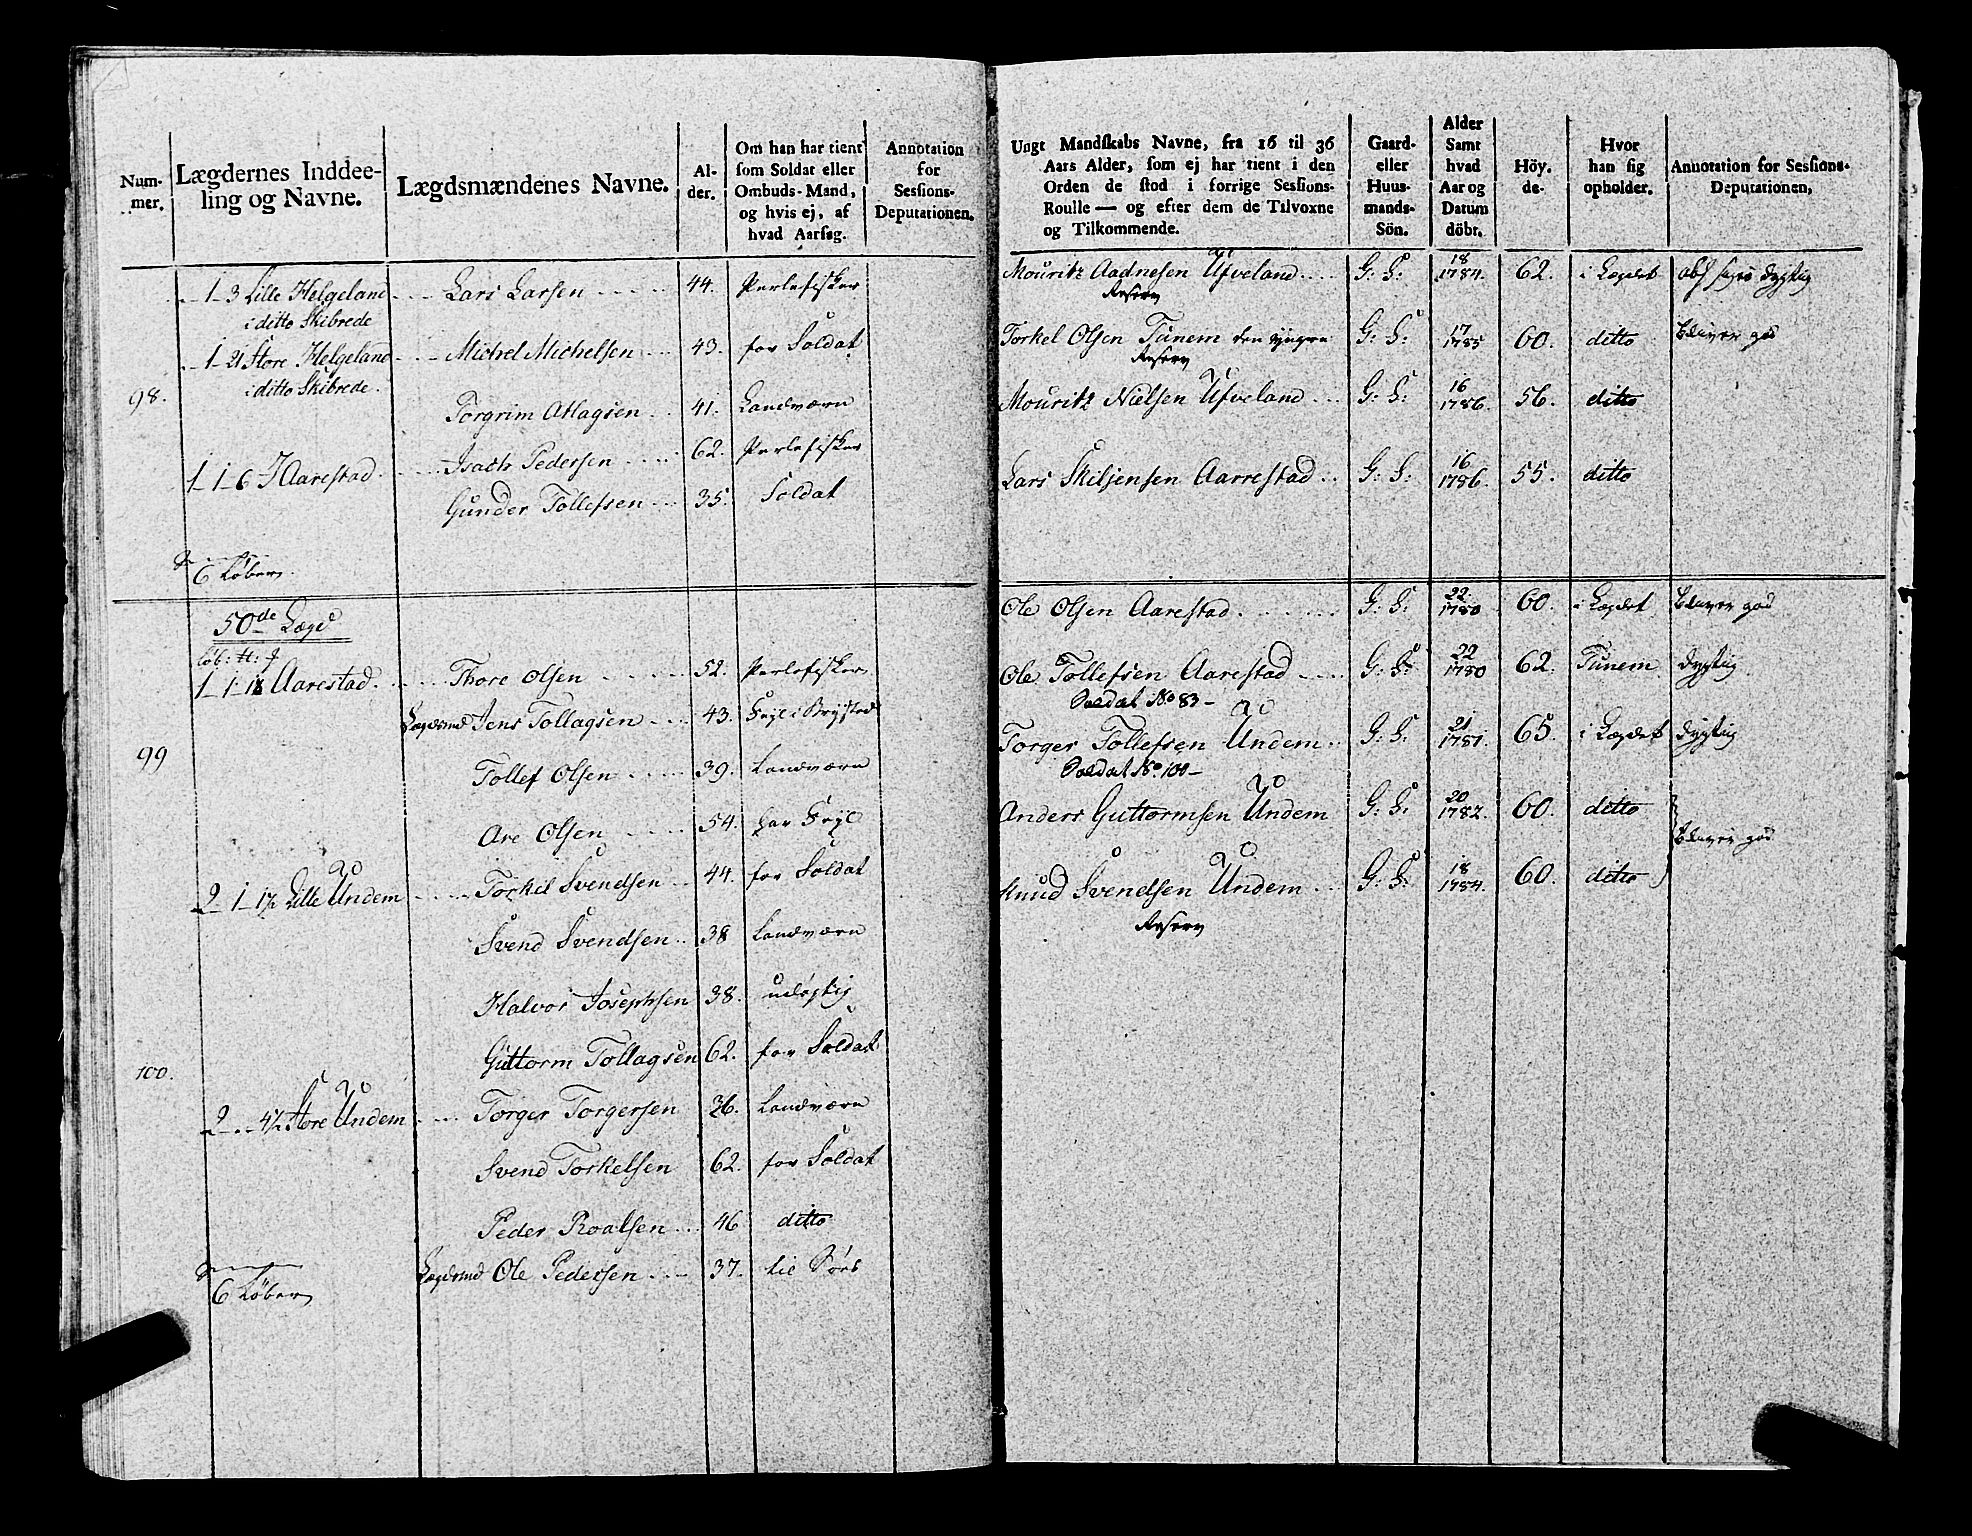 Num-
mer.
Lægdernes Inddee-
ling og Navne.
Lægdsmændenes Navne.
Al-
der.
Om han har tient
som Soldat eller
Ombuds-Mand,
og hvis ej, af
hvad Aarsag.
Annotation
for
Sessions-
Deputationen.
1_3 Lille Helgeland Lars Larsen 44. Perlefisker
i ditto Skibrede
1_21 Store Helgeland Michel Michelsen 43. for Soldat
i ditto Skibrede
98.
Torgrim Atlagsen 41. Landværn
Isach Pedersen 62. Perlefisker
1_1_6 Aarestad
Gunder Tollefsen 35. Soldat
6 Løber
50de Lægd
Løb: H: J
1_1_18 Aarestad Thore Olsen 52. Perlefisker
Lægdsmd Jens Tollagsen 43. Fejl i Brystet
99
Tollef Olsen 39. Landværn
Are Olsen 54. har Fejl
2_1_1½ Lille Undem Torkil Svendsen 44. for Soldat
Svend Svendsen 38 Landværn
Halvor Josephsen 38. udøgtig
Guttorm Tollagsen 62. for Soldat
100.
2_._4½ Store Undem Torger Torgersen 36. Landværn
Svend Torkelsen 62. for Soldat
Peder Roalsen 46 ditto
Lægdsmd Ole Pedersen 37. til Søes
6 Løber
Ungt Mandskabs Navne, fra 16 til 36
Aars Alder, som ej har tient i den
Orden de stod i forrige Sessions-
Roulle — og efter dem de Tilvoxne
og Tilkommende.
Gaard-
eller
Huus-
mands-
Sön.
Alder
Samt
hvad
Aar og
Datum
döbt.
Höy-
de-
Hvor
han sig
opholder.
Annotation for Sessions-
Deputationen,
Mouritz Aadnesen Ufveland G: S: 18 1784. 62. i Lægdet dygtig
Reserv
Torkel Olsen Tunem den yngre G: S: 17 1785 60. ditto bliver god
Reserv
Mouritz Nielsen Ufveland G: S: 16 1786. 56. ditto
Lars Skiljensen Aarrestad G: S: 16 1786. 55. ditto
Ole Olsen Aarestad G: S: 22 1780 60. i Lægdet bliver god
Ole Tollefsen Aarestad G: S: 22 1780 62. Tunem dygtig
Soldat No 83 –
Torger Tollefsen Undem G: S: 21 1781. 65. i Lægdet dygtig
Soldat No. 100 –
Anders Guttormsen Undem G: S: 20 1782. 60. ditto
bliver god
Knud Svendsen Undem G: S: 18 1784. 60. ditto
Reserv